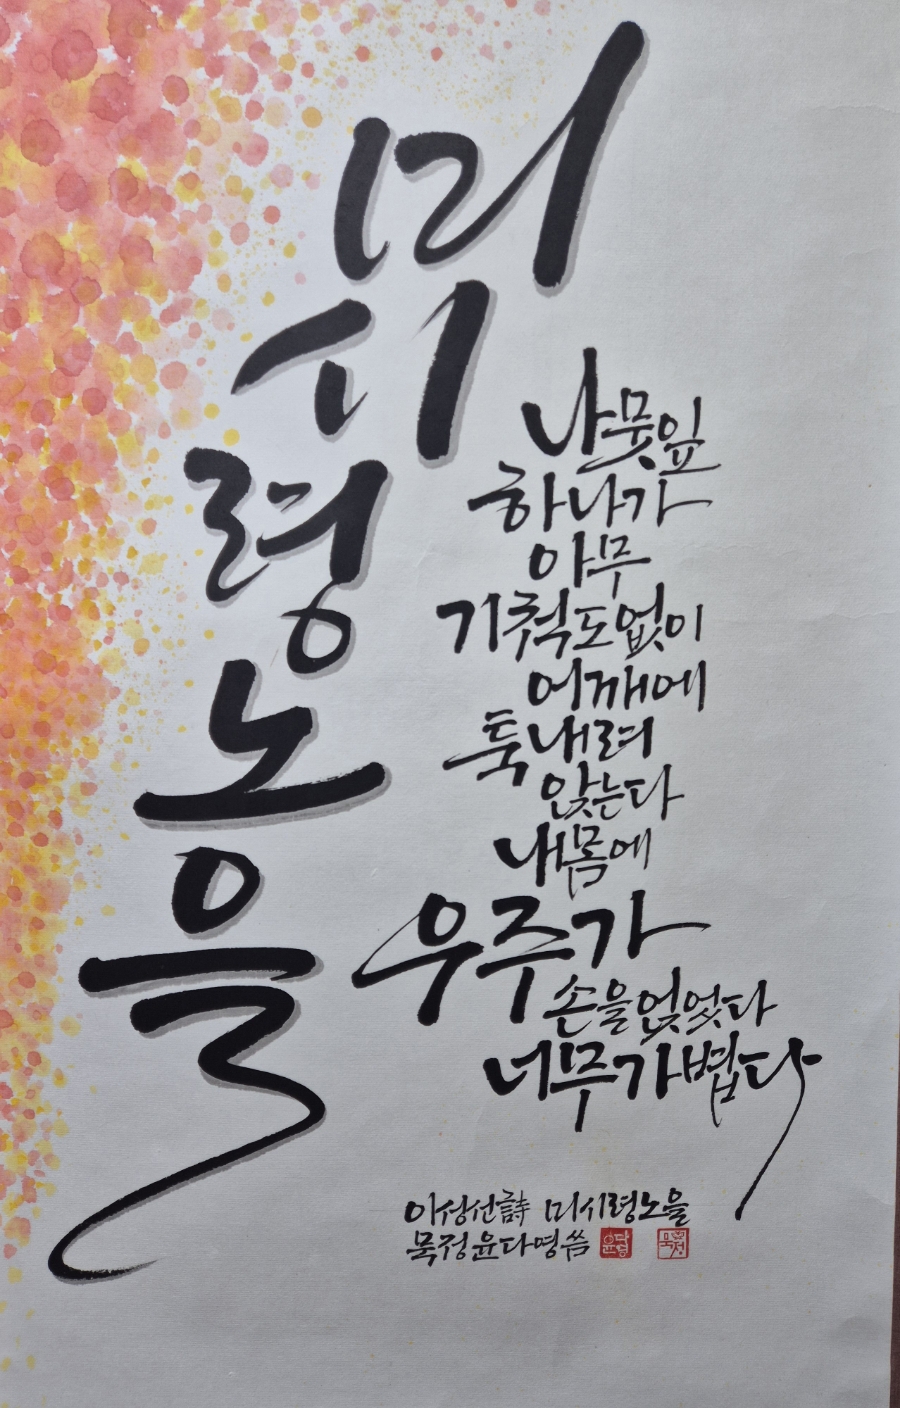 미
시
령
노
을
나뭇잎
하나가
아무
기척도없이
어깨에
툭내려
앉는다
내몸에
우주가
손을얹었다
너무가볍다
이성선詩 미시령노을
묵정윤다영씀
윤다영 묵정